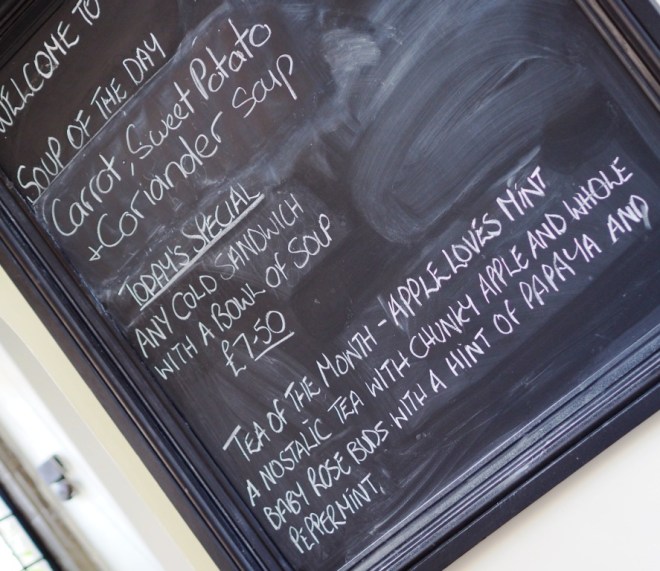 WELCOME TO
SOUP OF THE DAY
Carrot, Sweet Potato
+ Coriander Soup
TODAY'S SPECIAL
ANY COLD SANDWICH
WITH A BOWL OF SOUP
£7.50
TEA OF THE MONTH - APPLE LOVES MINT
A NOSTALIC TEA WITH CHUNKY APPLE AND WHOLE
BABY ROSE BUDS WITH A HINT OF PAPAYA AND
PEPPERMINT.